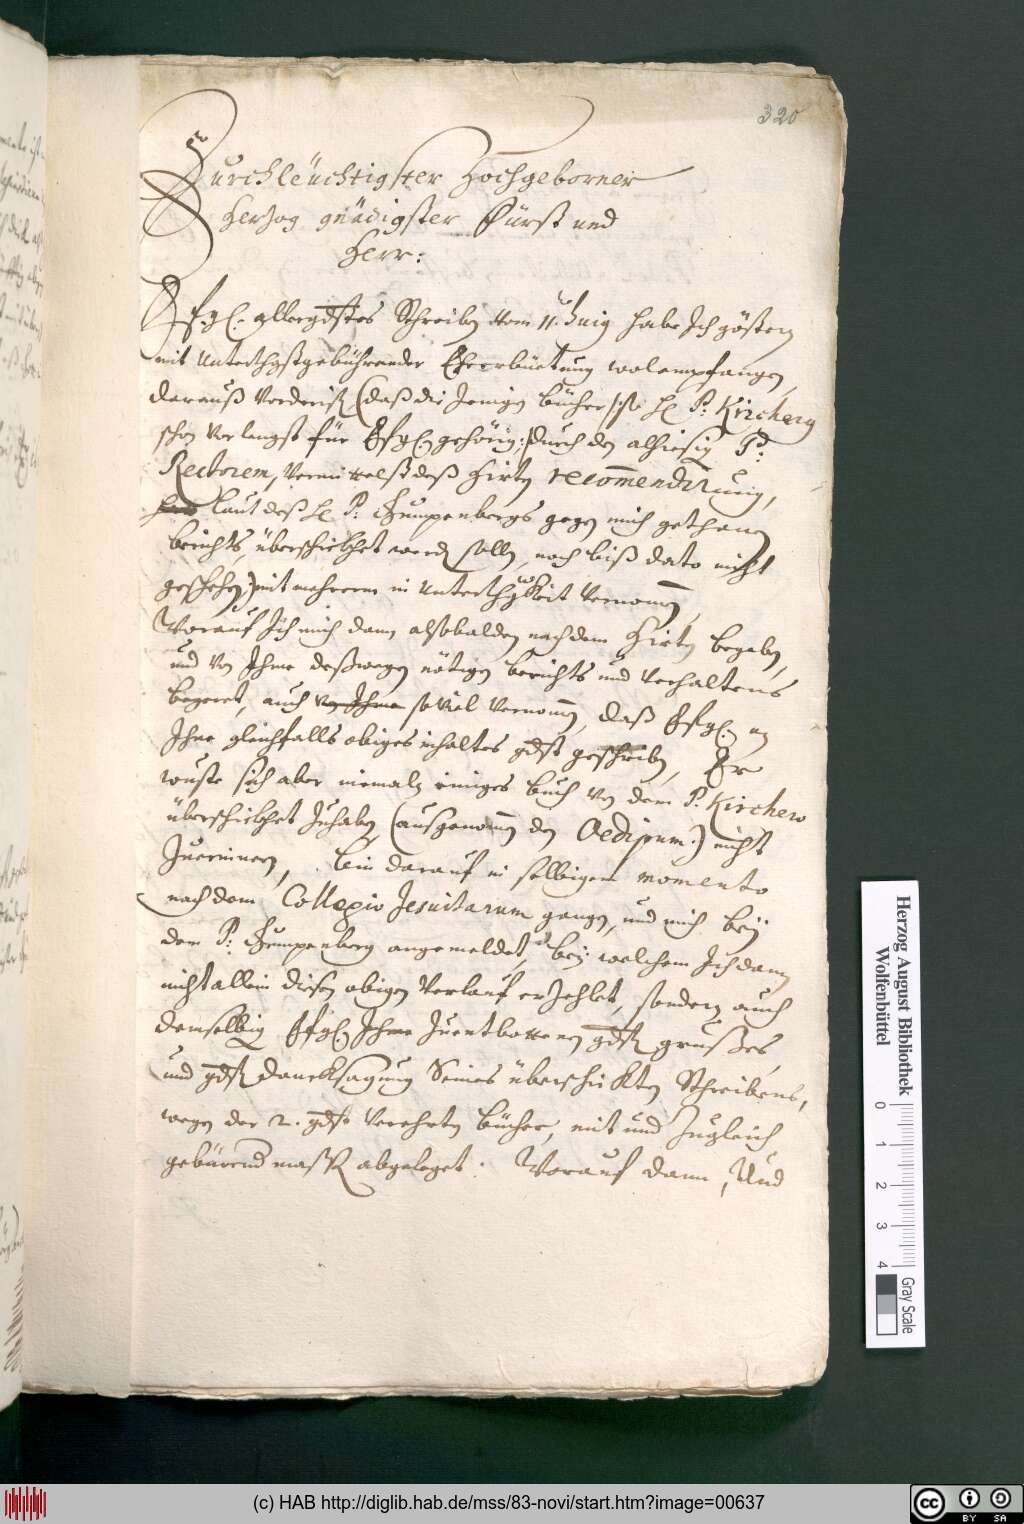 320
Durchleuchtigster Hochgeborner
Herzog gnädigster Fürst und
Herr:
Efgl. allergdstes Schreiben vom 11. Junij habe Ich gestern
mit Unterthgst gebührender Ehrerbietung wol empfangen,
darauß vorderist (daß die Jenigen bücher, so H P: Kirchero
schon vorlengst für Efgl. gehörig, durch den alhiesig P:
Rectorem, vermittelst deß Hirten recom̄endirung,
laut deß H P: Gumpenbergs gegen mich gethanen
berichts, überschicket werden sollen, noch biß dato nicht
geschehen) mit mehrerm in Unterthgkeit vernommen,
Worauf Ich mich dann alsobalden nach dem Hirten begeben,
und von Ihme deßwegen nötigen berichts und verhaltens
begeret, auch von Ihme so viel vernommen, daß Efgl. an
Ihne gleichfalls obiges inhaltes gdst geschrieben, Er
wuste sich aber niemaln einiges buch von dem P. Kirchero
überschicket Zuhaben (ausgenommen den Oedipum) nicht
Zuerinnern, bin darauf in selbigem momento
nach dem Collegio Jesuitarum gangen, und mich bey
dem P: Gumpenberg angemeldet, bey welchem Ich dann
nicht allein diesen obigen Verlauf erzehlet, sondern auch
demselbigen Efgl. Ihme Zuentbottenen gdst grusses,
und gdst dancksagung Seines überschickten Schreibens,
wegen der 2. gdst verehrten bücher, mit und Zugleich
gebürend massen abgeleget: Worauf dann, Und
Herzog August Bibliothek
Wolfenbüttel
0 1 2 3 4
Gray Scale
(c) HAB http://diglib.hab.de/mss/83-novi/start.htm?image=00637
cc BY SA